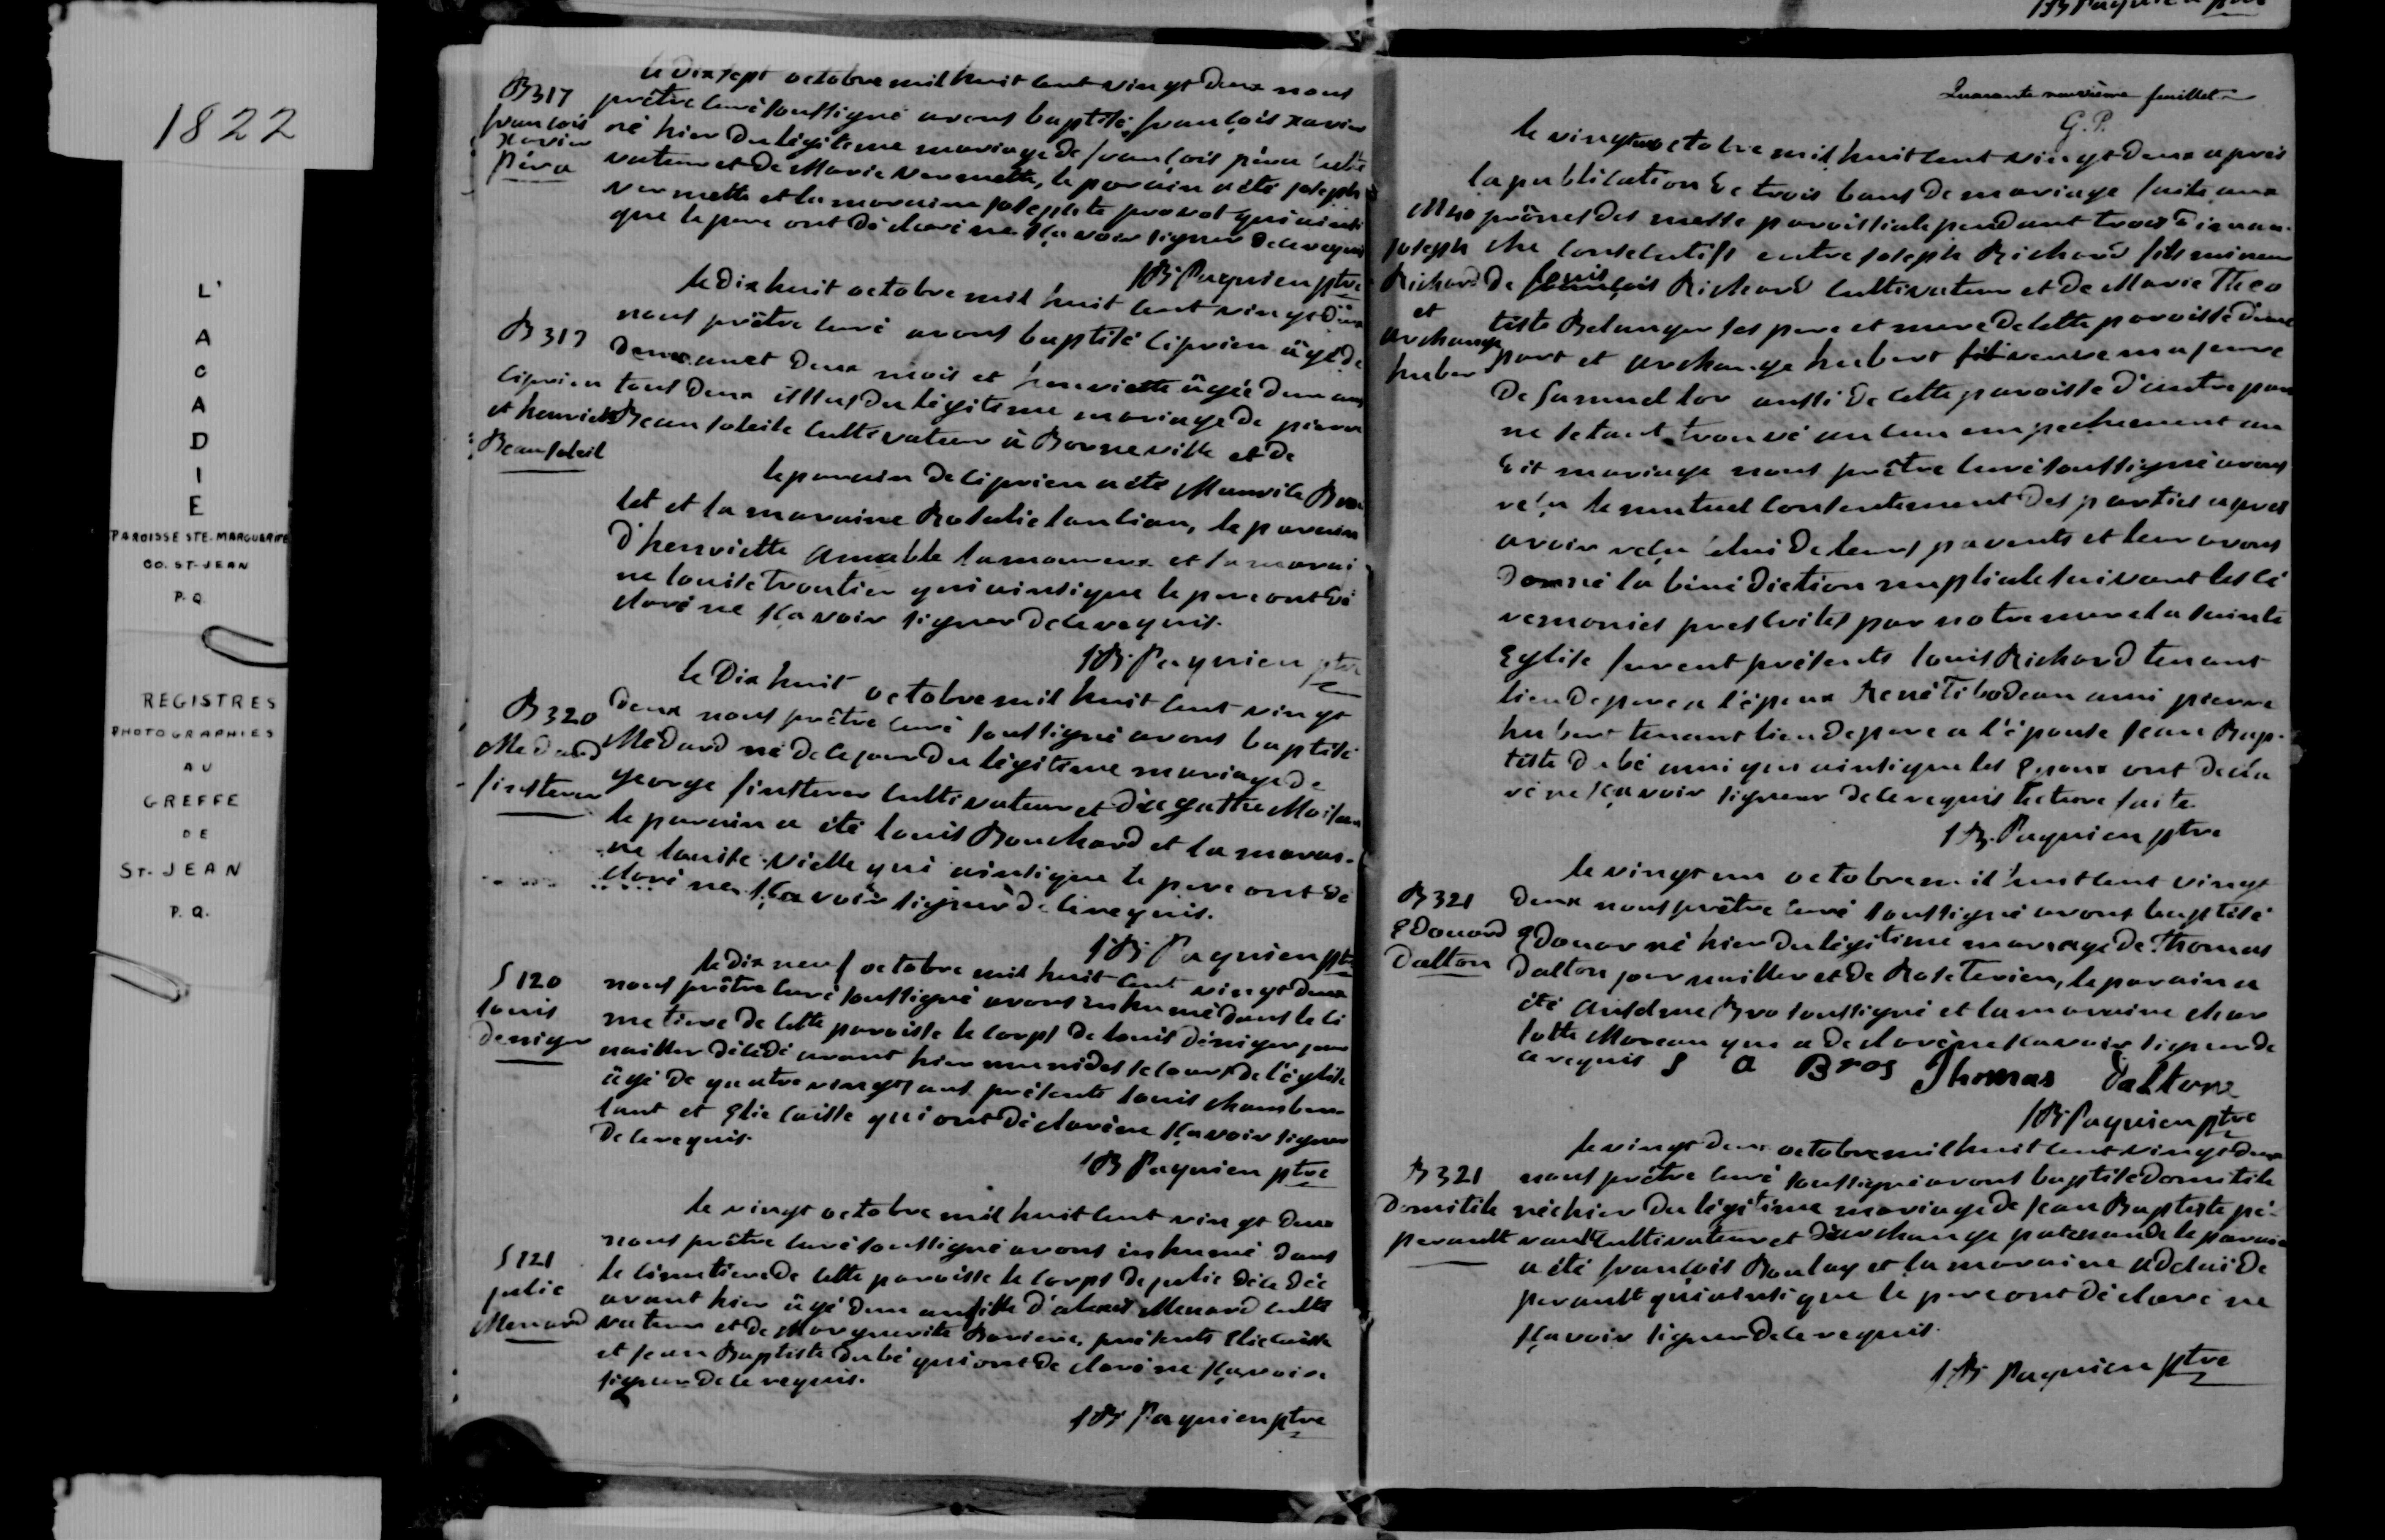 1822
L'
A
C
A
D
I
E
PAROISSE STE. MARGUERITE
CO. ST-JEAN
P.Q.
REGISTRES
PHOTOGRAPHIES
AU
GREFFE
DE
ST-JEAN
P.Q.
B317
françois
Xavier
Péra
le dix sept octobre mil huit cent vingt deux nous
prêtre curé soussigné avons baptisé françois xavier
né hier du légitime mariage de françois péra culti
vateur et de Marie vermette, le parain a été joseph
vermette et la maraine josephte provot qui ainsi
que le pere ont déclaré ne sçavoir signer de ce requis
JB Paquien ptre
B317
Ciprien
et henriette
Beausoleil
le dix huit octobre mil huit cent vingt deux
nous prêtre curé avons baptisé Ciprien âgé de
deux an et deux mois et henriette âgée d'un an
tous deux issus du légitime mariage de pierre
Beausoleile cultivateur à Bonneville et de
le parain de Ciprien a été
let et la maraine Rosalie, le parain
d'henriette amable lamoureux et la marai
ne louise troutier qui ainsi que le pere ont dé
claré ne sçavoir signer de ce requis.
JB Paquien ptre
B320
Medard
le Dix huit octobre mil huit cent vingt
deux nous prêtre curé soussigné avons baptisé
Medard né de ce jour du légitime mariage de
george cultivateur et d'agathe
le parain a été louis Bouchard et la marai-
ne louise vielle qui ainsi que le pere ont dé
claré ne sçavoir signer de ce requis.
JB Paquien ptre
S120
louis
deniger
le dix neuf octobre mil huit cent vingt deux
nous prêtre curé soussigné avons inhumé dans le ci
metiere de cette paroisse le corps de louis déniger jour
nailler décédé avant hier muni des secours de l'église
âgé de quatre vingt ans présents louis
lant et Elie caisse qui ont déclaré ne sçavoir signer
de ce requis.
JB Paquien ptre
S121
julie
Menard
le vingt octobre mil huit cent vingt deux
nous prêtre curé soussigné avons inhumé dans
le cimetiere de cette paroisse le corps de julie décédée
avant hier âgé d'un an fille d'alexis Menard culti
vateur et de Marguerite, présents Elie caisse
et jean Baptiste dubé qui ont declaré ne sçavoir
signer de ce requis.
JB Paquien ptre
Quarante neuvième feuillet
G.P.
joseph
Richard
et
archange
huber
le vingt un octobre mil huit cent vingt deux après
la publication de trois bans de mariage faite aux
prônes des messe paroissiale pendant trois diman-
che consecutifs entre joseph Richard fils mineur
de louis Richard cultivateur et de Marie Theo
tiste Belanger ses pere et mere de cette paroisse d'une
part et archange hubert veuve majeure
de Samuel lov aussi de cette paroisse d'autre part
ne s'etant trouvé aucun empechement au
dit mariage nous prêtre curé soussigné avons
reçu le mutuel consentement des parties après
avoir reçu celui de leurs parents et leur avons
donné la bénédiction nuptiale suivant les cé
remonies prescrites par notre mere la sainte
Eglise furent présents louis Richard tenant
lieu de pere a l'époux René Tibodeau ami pierre
hubert tenant lieu de pere a l'épouse jean Bap-
tiste dubé ami qui ainsi que les Epoux ont décla
ré ne sçavoir signer de ce requis lecture faite
JB Paquien ptre
B321
Edouard
Dalton
le vingt un octobre mil huit cent vingt
deux nous prêtre curé soussigné avons baptisé
Edouar né hier du légitime mariage de Thomas
Dalton journaillier et de Rose, le parain a
été Anselme Bro soussigné et la maraine char
lotte Moreau qui a declaré ne sçavoir signer de
ce requis S A Bros Thomas Dalton
JB Paquien ptre
B321
Domitile
perault
le vingt deux octobre mil huit cent vingt deux
nous prêtre curé soussigné avons baptisé Domitile
née hier du légitime mariage de jean Baptiste pé-
rault cultivateur et d'archange patenaude le parain
a été françois Boulay et la maraine adelaide
perault qui ainsi que le pere ont déclaré ne
sçavoir signer de ce requis.
JB Paquien ptre